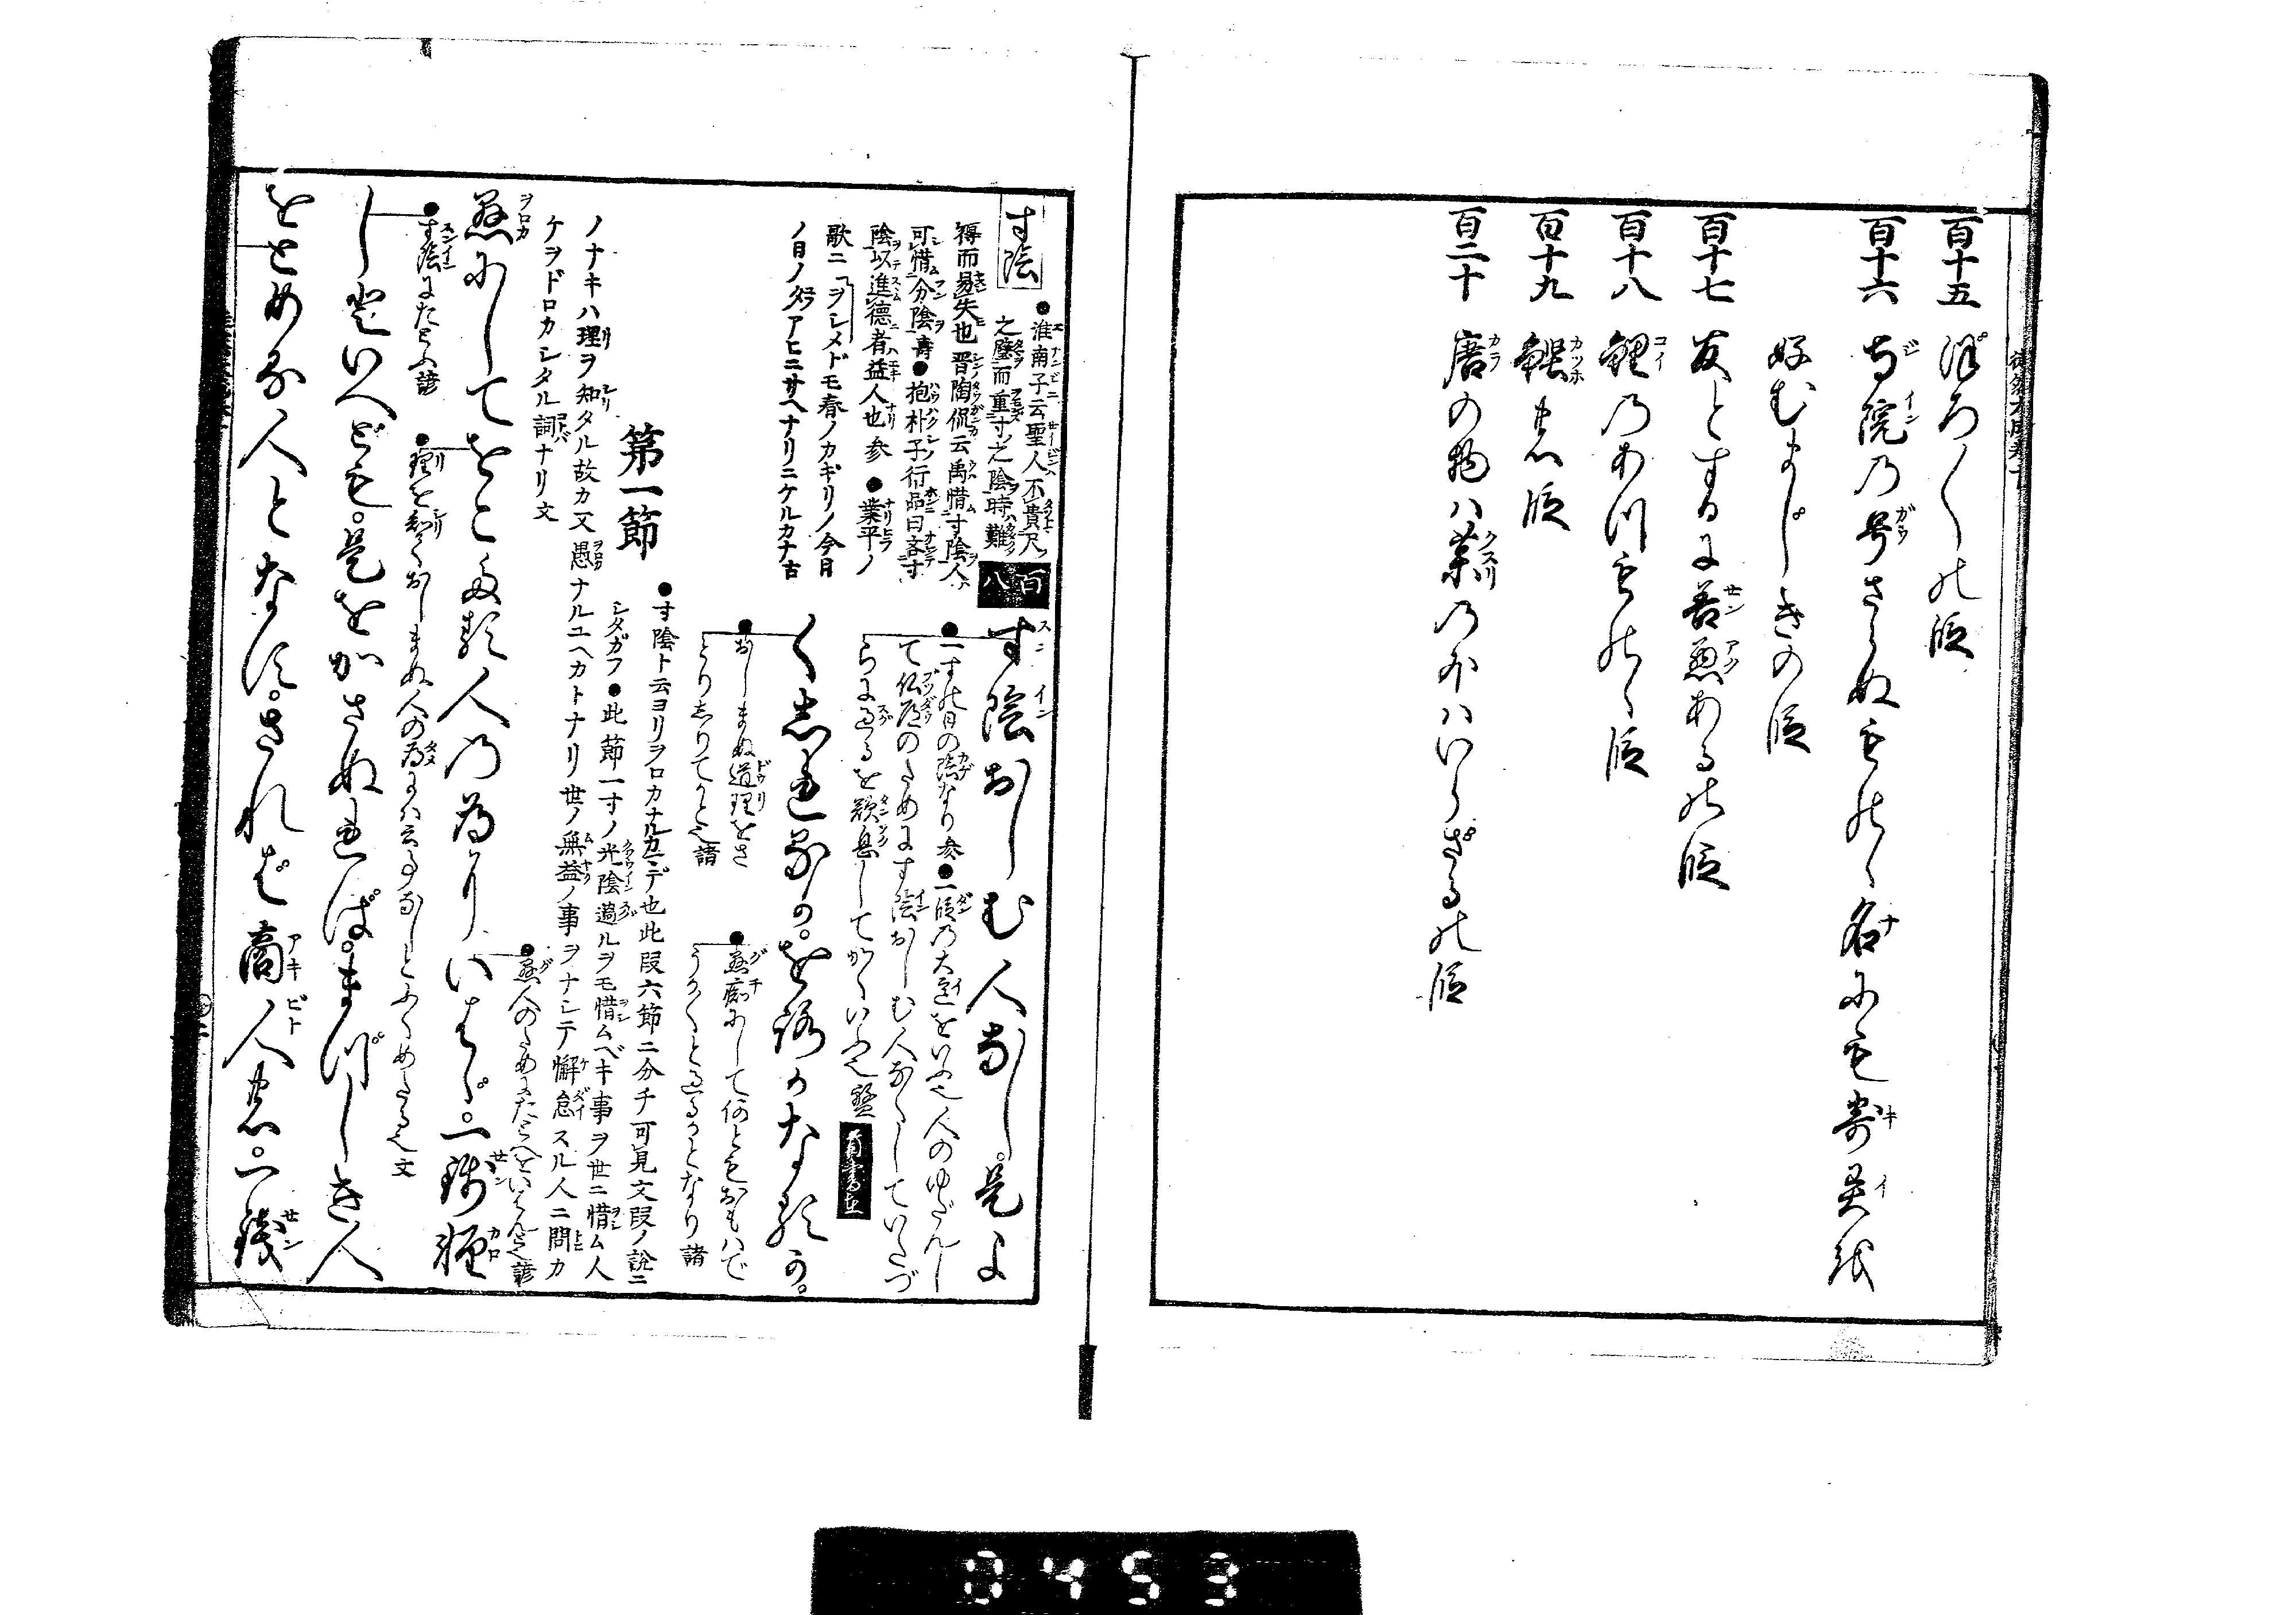 百十五 ぼろ〳〵の段
百十六 寺院の号さらぬものゝ名にも寄異を
好むまじきの段
百十七 友とするに善悪ある の段
百十八 鯉のあつものゝ段
百十九 鰹魚の段
百二十 唐の物ハ薬の外ハいらざるの段
寸陰
●淮南子云聖人不貴尺
之璧而重寸之陰時難
得而易失也晋陶侃云禹惜寸陰人
可惜分陰 壽●抱朴子行品曰吝寸
陰以進德者益人也 参 ●業平ノ
歌ニヲシメドモ春ノカギリノ今日
ノ日ノタクアヒニサヘナリニケルカナ古
百八
寸陰おしむ人なし。是よ
●一寸の日の陰なり 参●一段の大意をいふ也人のゆだんし
て仏道のためにす陰おしむ人なくしていたづ
らに過るを歎息してかくいふ也 盤
く志れるか。をろかなるか。
●おしまぬ道理をさ
とりしりてかと也 諸
●愚痴にして何ともおもハで
うか〳〵と過るかとなり 諸
●寸陰ト云ヨリヲロカナルカニデ也此段六節ニ分チ可見文段ノ説ニ
シタガフ●此節一寸ノ光陰過ルヲモ惜ムベキ事ヲ世ニ惜ム人
第一節
ノナキハ理ヲ知タル故カ又愚ナルユヘカトナリ世ノ無益ノ事ヲナシテ懈怠スル人ニ問カ
ケヲドロカシタル詞ナリ 文
●愚人のためにたとへをいはんと也 諺
愚にしてをこたる人の為にいはゞ。一銭軽
●寸陰にたとふ 諺
●理を知ておしまぬ人の為にハ云事なしとふくめたる也 文
しといへども。是をかさぬれば。まづしき人
をとめる人となす。されば商人の。一銭